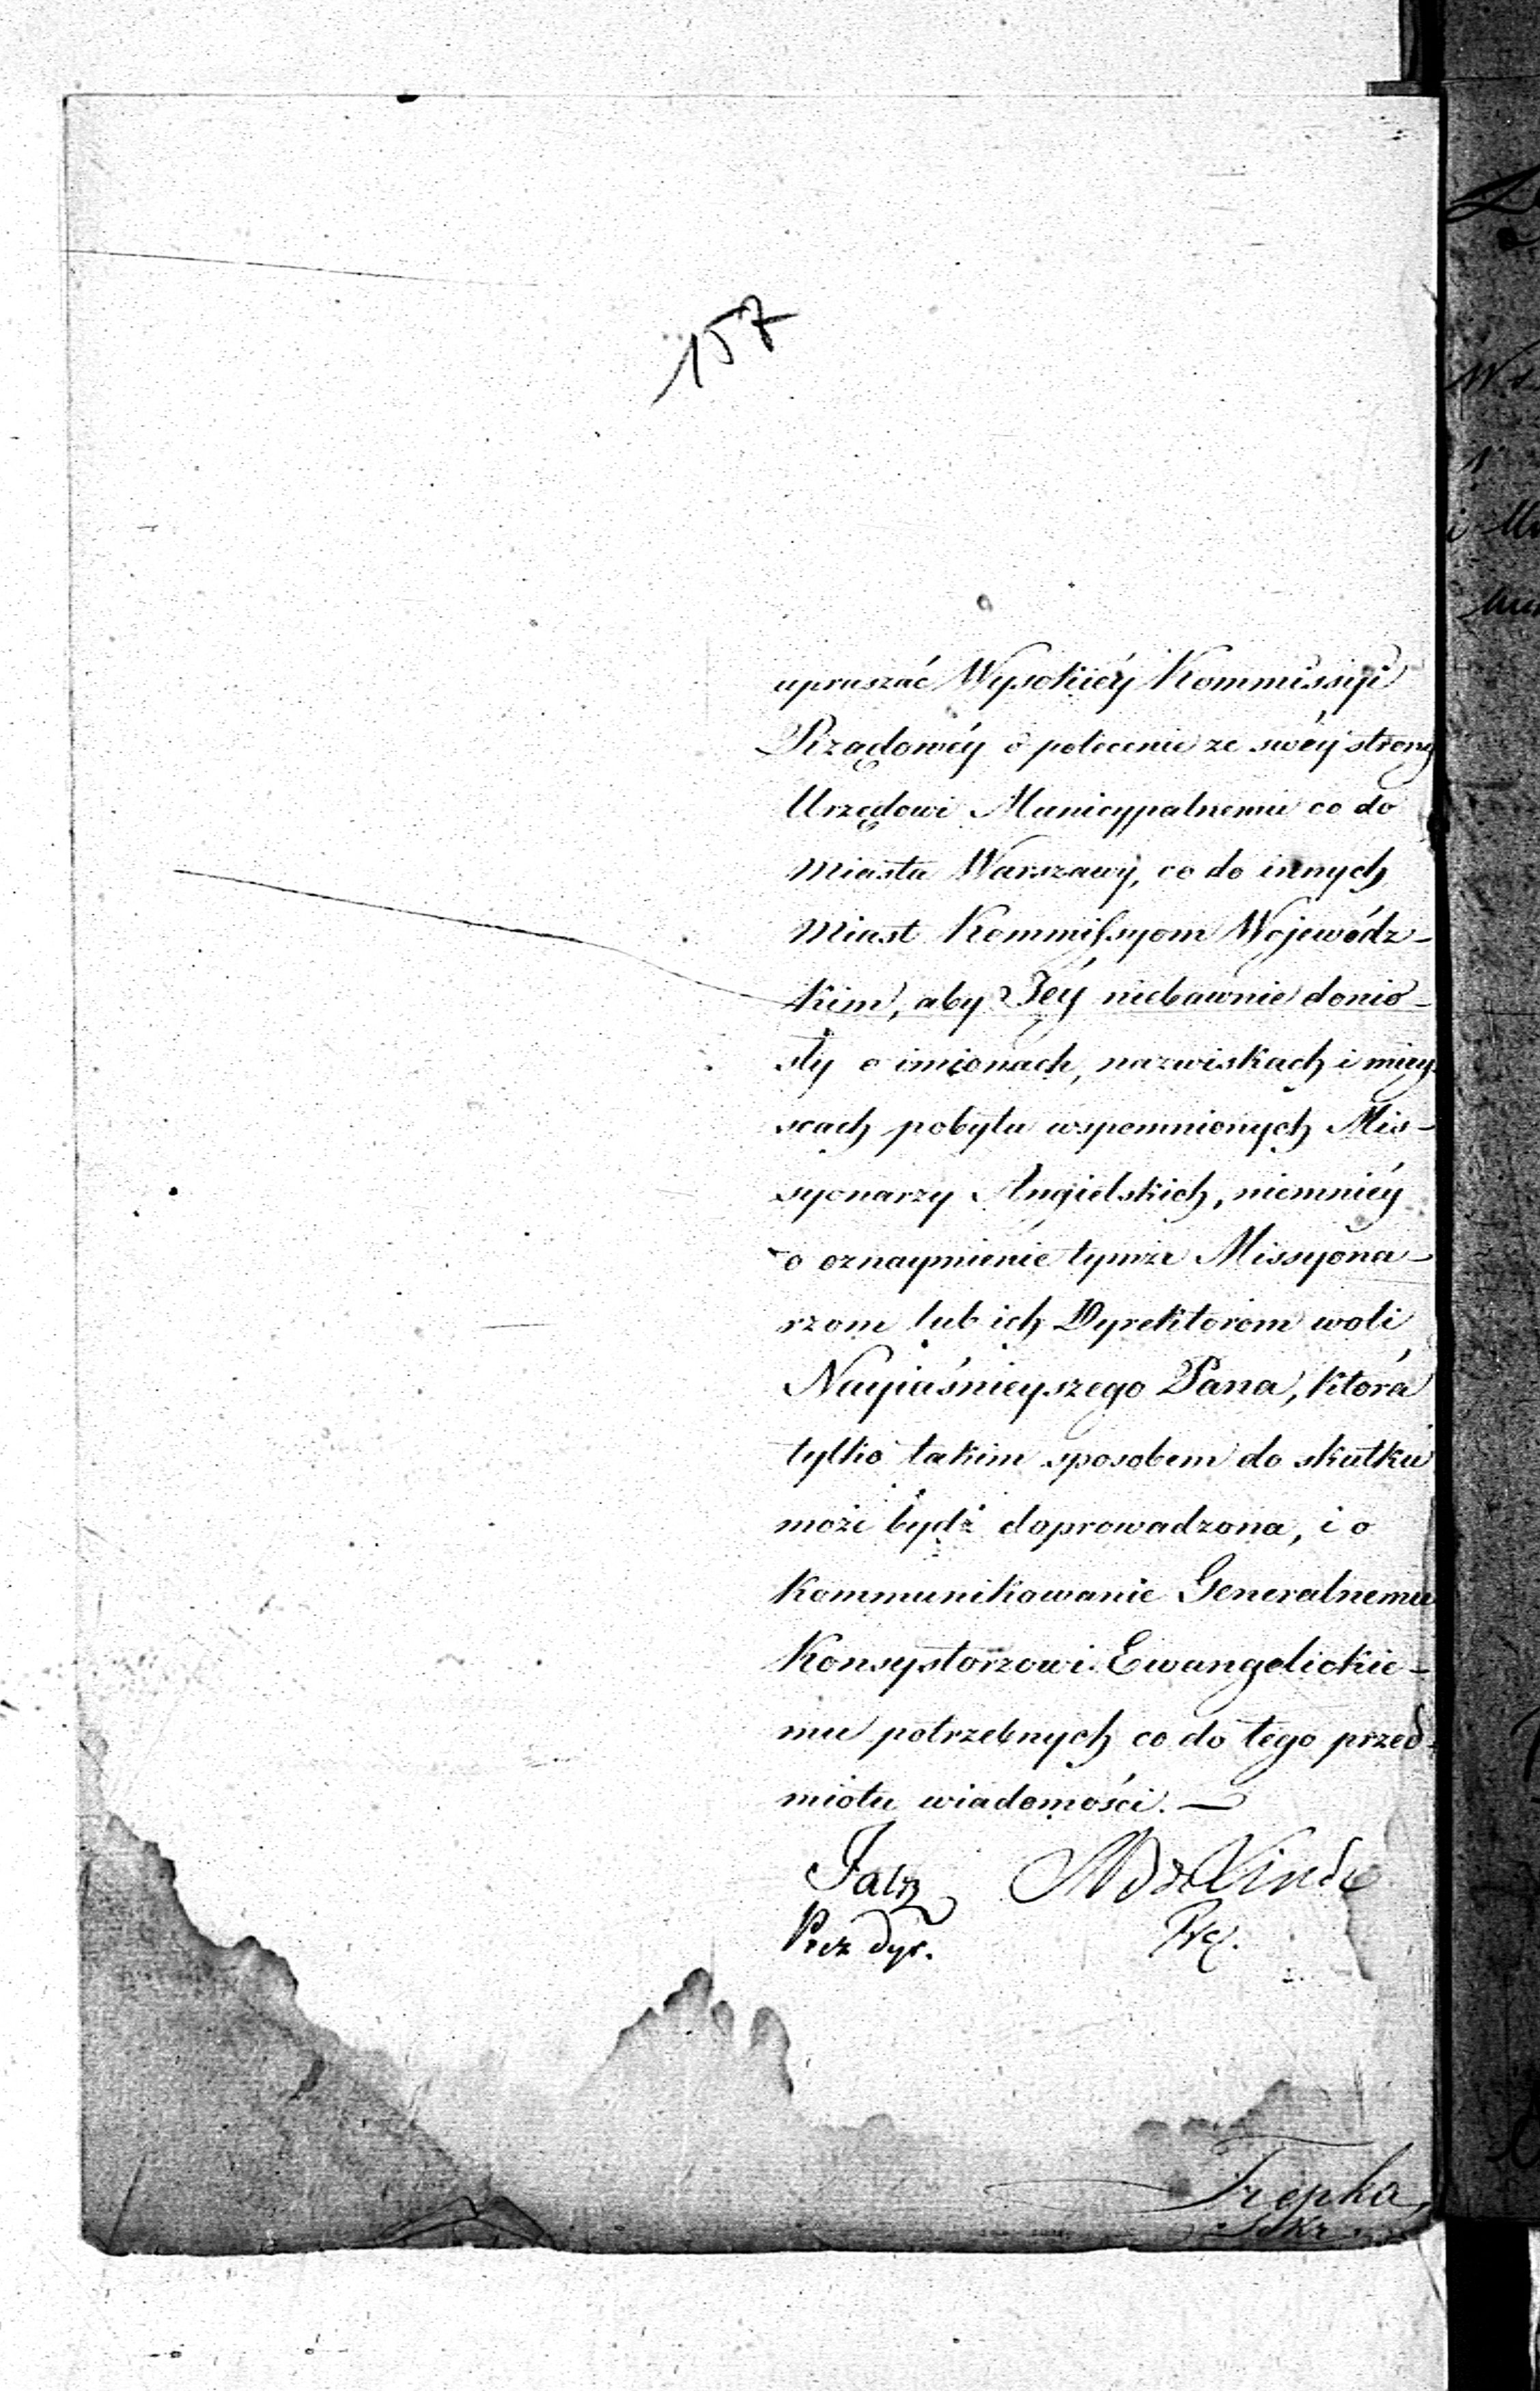 157
upraszać Wysokiéy Kommissyi
Rządowéy o polecenie ze swéy strony
Urzędowi Municypalnemu co do
Miasta Warszawy, co do innych
Miast Kommissyom Wojewódz-
kim, aby Jéy niebawnie donio-
sły o imionach, nazwiskach i miey-
scach pobytu wspomnionych Mis-
syonarzy Angielskich, niemniéy
o oznaymienie tymże Missyona-
rzom lub ich Dyrektorom woli
Nayiaśnieyszego Pana, która
tylko takim sposobem do skutku
może bydź doprowadzona, i o
Kommunikowanie Generalnemu
Konsystorzowi Ewangelickie-
mu potrzebnych co do tego przed-
miotu wiadomości. —
Prez dyr.
Trepka
Sekr.